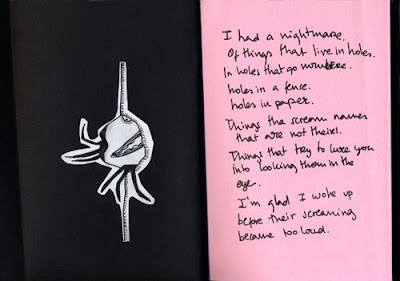 I had a nightmare.
Of things that live in holes.
In holes that go nowhere.
holes in a fence.
holes in paper.
Things tha scream names
that are not theirs.
Things that try to lure you
into looking them in the
eye.
I'm glad I woke up
before their screaming
became too loud.